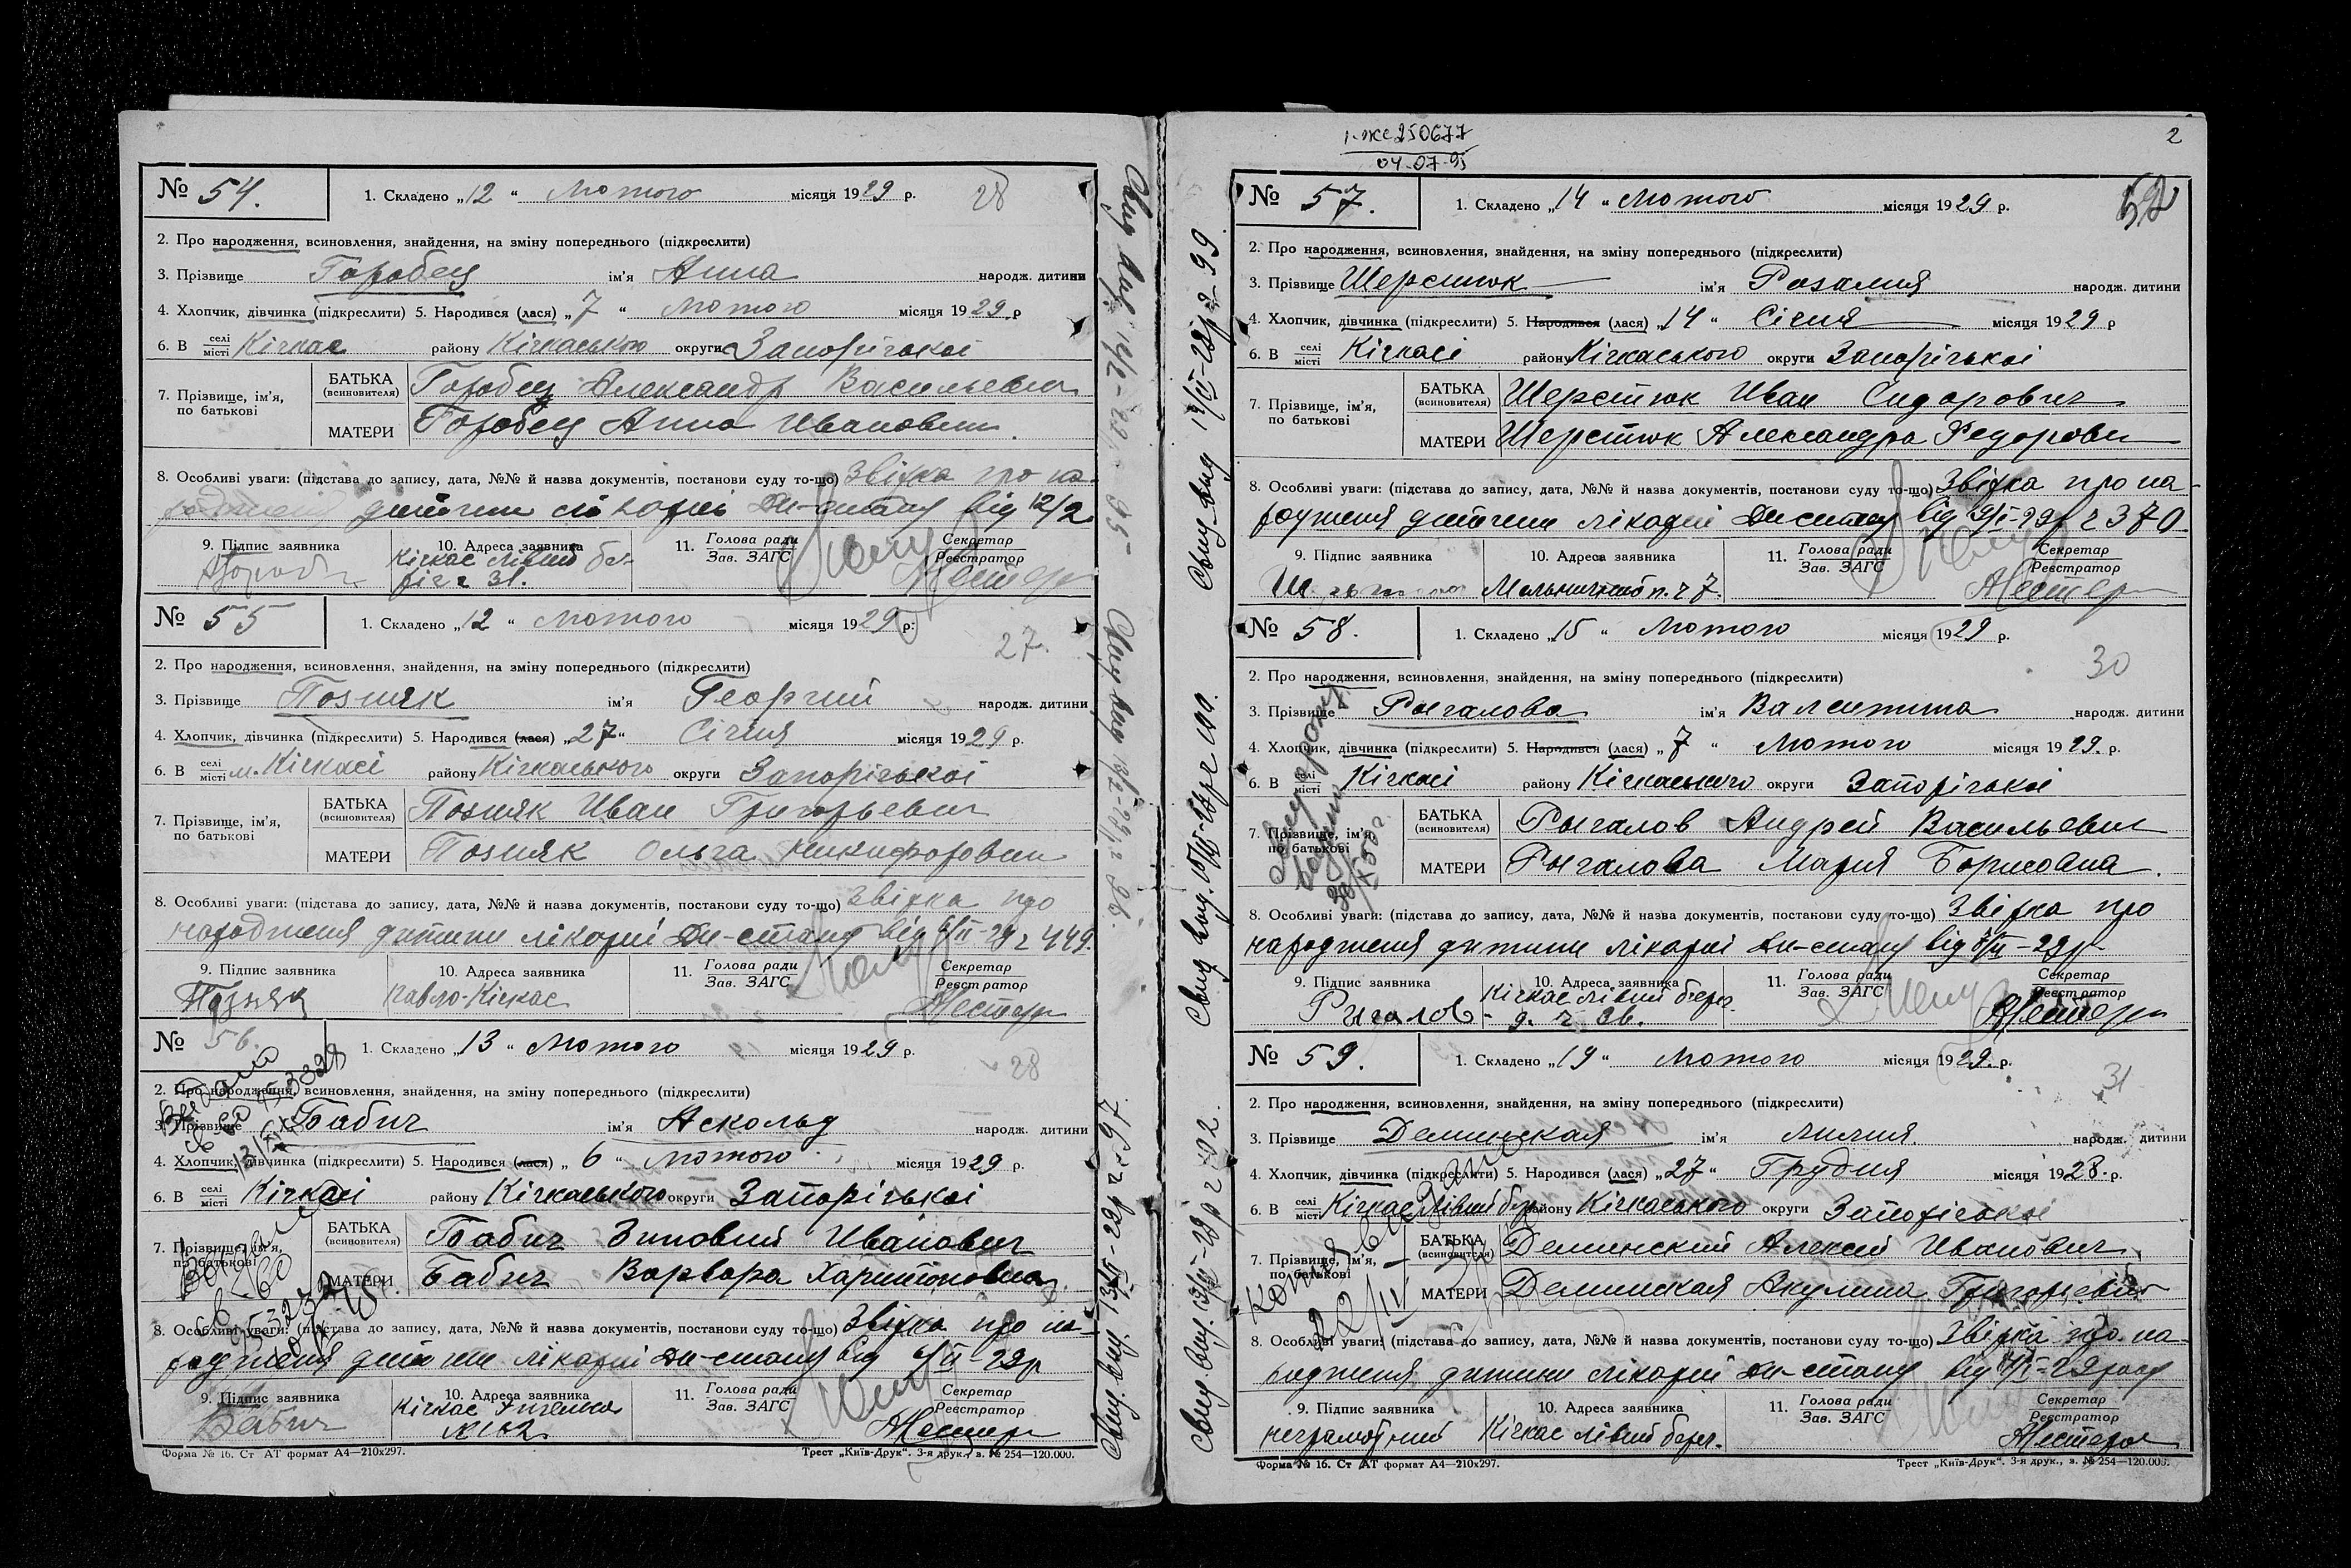 № 54. 1. Складено „12“ Лютого місяця 1929 р. 28
2. Про народження, всиновлення, знайдення, на зміну попереднього (підкреслити)
3. Прізвище Горобец ім'я Анна народж. дитини
4. Хлопчик, дівчинка (підкреслити) 5. Народився (лася) „7“ Лютого місяця 1929 р
6. В селі місті Кічкас району Кічкаського округи Запорізької
7. Прізвище, ім'я, по батькові
БАТЬКА (всиновителя) Горобец Александр Васильевич
МАТЕРИ Горобец Анна Ивановна.
8. Особливі уваги: (підстава до запису, дата, №№ й назва документів, постанови суду то-що) Звірка про на-
родження дитини лікарні Дн-стану від 12/2
9. Підпис заявника 10. Адреса заявника 11. Голова ради Зав. ЗАГС Секретар Реєстратор
Кічкас лівий бе-
ріг ч 31.
№ 55 1. Складено „12“ Лютого місяця 1929 р.
27.
2. Про народження, всиновлення, знайдення, на зміну попереднього (підкреслити)
3. Прізвище Позняк ім'я Георгий народж. дитини
4. Хлопчик, дівчинка (підкреслити) 5. Народився (лася) „27“ Січня місяця 1929 р.
6. В селі місті м. Кічкасі району Кічкаського округи Запорізької
7. Прізвище, ім'я, по батькові
БАТЬКА (всиновителя) Позняк Иван Григорьевич
МАТЕРИ Позняк Ольга Никифоровна
8. Особливі уваги: (підстава до запису, дата, №№ й назва документів, постанови суду то-що) Звірка про
народження дитини лікарні Дн-стану від 6/II-29 ч 449.
9. Підпис заявника 10. Адреса заявника 11. Голова ради Зав. ЗАГС Секретар Реєстратор
Позняк Павло-Кічкас
№ 56. 1. Складено „13“ Лютого місяця 1929 р.
28
2. Про народження, всиновлення, знайдення, на зміну попереднього (підкреслити)
3. Прізвище Бабич ім'я Аскольд народж. дитини
4. Хлопчик, дівчинка (підкреслити) 5. Народився (лася) „6“ Лютого місяця 1929 р.
6. В селі місті Кічкасі району Кічкаського округи Запорізької
7. Прізвище, ім'я, по батькові
БАТЬКА (всиновителя) Бабич Зиновий Иванович
МАТЕРИ Бабич Варвара Харитоновна
8. Особливі уваги: (підстава до запису, дата, №№ й назва документів, постанови суду то-що) Звірка про на-
родження дитини лікарні Дн-стану від 6/II-29р
9. Підпис заявника 10. Адреса заявника 11. Голова ради Зав. ЗАГС Секретар Реєстратор
Бабич Кічкас
Форма № 16. Ст АТ формат А4—210х297. Трест „Київ-Друк“. 3-я друк., з. № 254—120.000.
250677
04-07-95
2
№ 57. 1. Складено „14“ Лютого місяця 1929 р.
2. Про народження, всиновлення, знайдення, на зміну попереднього (підкреслити)
3. Прізвище Шерстюк ім'я Розалия народж. дитини
4. Хлопчик, дівчинка (підкреслити) 5. Народився (лася) „14“ Січня місяця 1929 р
6. В селі місті Кічкасі району Кічкаського округи Запорізької
7. Прізвище, ім'я, по батькові
БАТЬКА (всиновителя) Шерстюк Иван Сидорович
МАТЕРИ Шерстюк Александра Федоровн
8. Особливі уваги: (підстава до запису, дата, №№ й назва документів, постанови суду то-що) Звірка про на-
родження дитини лікарні ч 370
9. Підпис заявника 10. Адреса заявника 11. Голова ради Зав. ЗАГС Секретар Реєстратор
Мельничний п. ч 7.
№ 58. 1. Складено „15“ Лютого місяця 1929 р.
30
2. Про народження, всиновлення, знайдення, на зміну попереднього (підкреслити)
3. Прізвище Рычалова ім'я Валентина народж. дитини
4. Хлопчик, дівчинка (підкреслити) 5. Народився (лася) „7“ Лютого місяця 1929. р.
6. В селі місті Кічкасі району Кічкаського округи Запорізької
7. Прізвище, ім'я, по батькові
БАТЬКА (всиновителя) Рычалов Андрей Васильевич
МАТЕРИ Рычалова Мария Борисовна.
8. Особливі уваги: (підстава до запису, дата, №№ й назва документів, постанови суду то-що) Звірка про
народження дитини лікарні Дн-стану від
9. Підпис заявника 10. Адреса заявника 11. Голова ради Зав. ЗАГС Секретар Реєстратор
Рычалов Кічкас лівий берег.
№ 59. 1. Складено „19“ Лютого місяця 1929. р.
31
2. Про народження, всиновлення, знайдення, на зміну попереднього (підкреслити)
3. Прізвище Деминская ім'я Лилия народж. дитини
4. Хлопчик, дівчинка (підкреслити) 5. Народився (лася) „27“ Грудня місяця 1928. р.
6. В селі місті Кічкас лівий бер району Кічкаського округи Запорізької
7. Прізвище, ім'я, по батькові
БАТЬКА (всиновителя) Деминский Алексей Иванович
МАТЕРИ Деминская Акулина Григорьевна
8. Особливі уваги: (підстава до запису, дата, №№ й назва документів, постанови суду то-що) Звірка про на-
родження дитини лікарні Дн-стану від
9. Підпис заявника 10. Адреса заявника 11. Голова ради Зав. ЗАГС Секретар Реєстратор
неграмотний Кічкас лівий берег.
Форма № 16. Ст АТ формат А4—210х297. Трест „Київ-Друк“. 3-я друк., з. № 254—120.000.